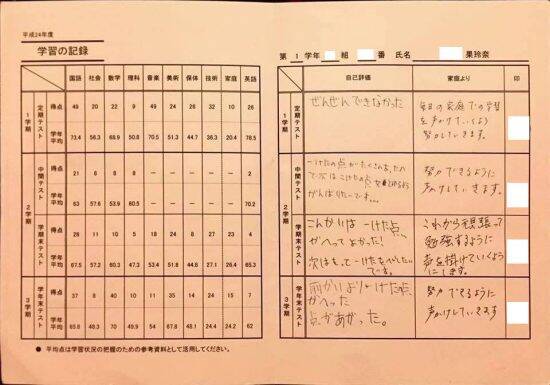 平成24年度
学習の記録
国語 社会 数学 理科 音楽 美術 保体 技術 家庭 英語
1学期 定期テスト 得点 49 20 22 9 49 24 26 32 10 26
学年平均 73.4 56.3 68.9 50.8 70.5 51.3 44.7 36.3 20.4 78.5
2学期 中間テスト 得点 21 6 8 8 － － － － － 2
学年平均 63 57.6 53.9 60.5 － － － － － 70.2
学期末テスト 得点 28 11 10 5 18 24 8 27 23 4
学年平均 67.5 57.2 60.3 47.3 53.4 51.8 44.8 27.1 26.4 65.3
3学期 学年末テスト 得点 37 8 40 10 11 35 14 24 15 7
学年平均 65.8 48.3 70 49.9 54 67.8 48.1 24.4 24.2 62
● 平均点は学習状況の把握のための参考資料として活用してください。
第 1 学年 組 番 氏名 果玲奈
自己評価 家庭より 印
1学期 定期テスト
ぜんぜんできなかった
毎日の家庭での学習
を声かけていくよう
努力していきます。
2学期 中間テスト
一けたの点がたくさんあったので
がんばりたいです…
努力できるように
声かけしていきます。
学期末テスト
こんかいは一けた点
がへってよかった！
次はもって一けたをへらしたい
です。
これから頑張って
勉強するように
声を掛けていくように
します。
3学期 学年末テスト
前かいより一けた点
がへった
点があがった。
努力できるように
声かけしていきます